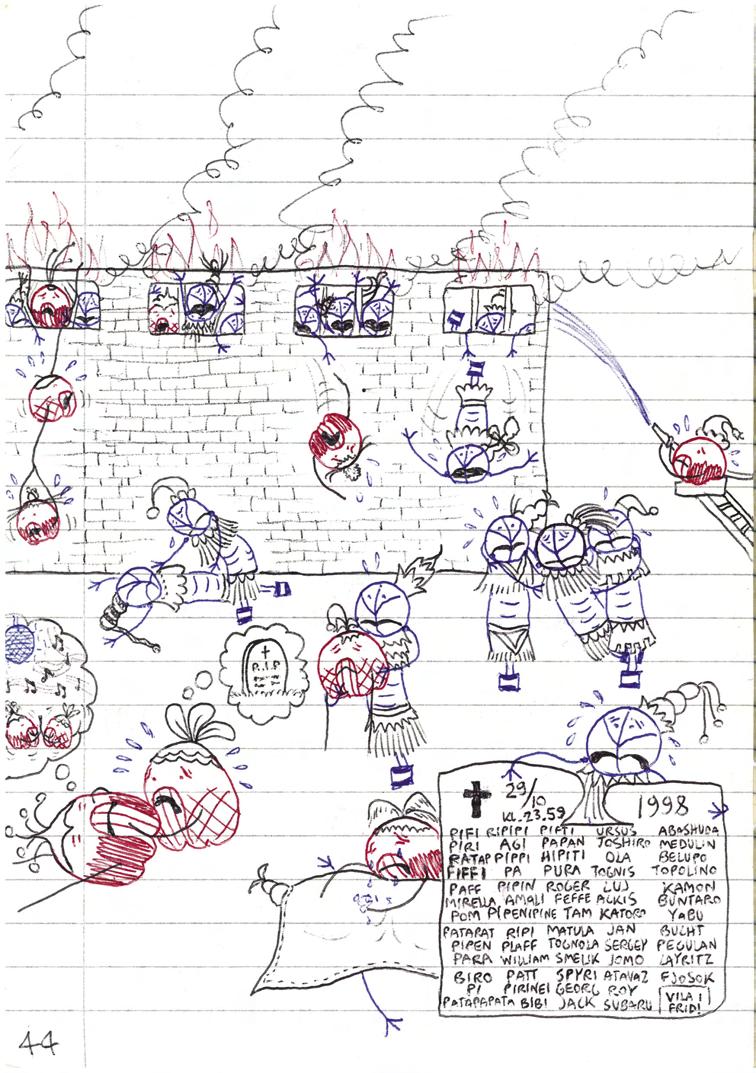 R.I.P
29/10
KL.23.59
1998
PIFI RIPIPI PIFTI URSUS ABASHUDA
PIRI AGI PAPAN JOSHIRO MEDULIN
RATAP PIPPI HIPITI OLA BELUPO
FIFFI PA PURA TOGNIS TOPOLINO
PAFF PIPIN ROGER LUJ KAMON
MIRELLA AMALI FEFFE ALKIS BUNTARO
POM PIPENIPINE TAM KATORO YABU
PATARAT RIPI MATULA JAN BUCHT
PIPEN PLAFF TOGNOLA SERGEY PEGULAN
PARA WILLIAM SMELIK JOMO LAYRITZ
BIRO PATT SPYRI ATAVAZ FJOSOK
PI PIRINEI GEORG ROY
PATAPAPATA BIBI JACK SUBARU
VILA I
FRID!
44